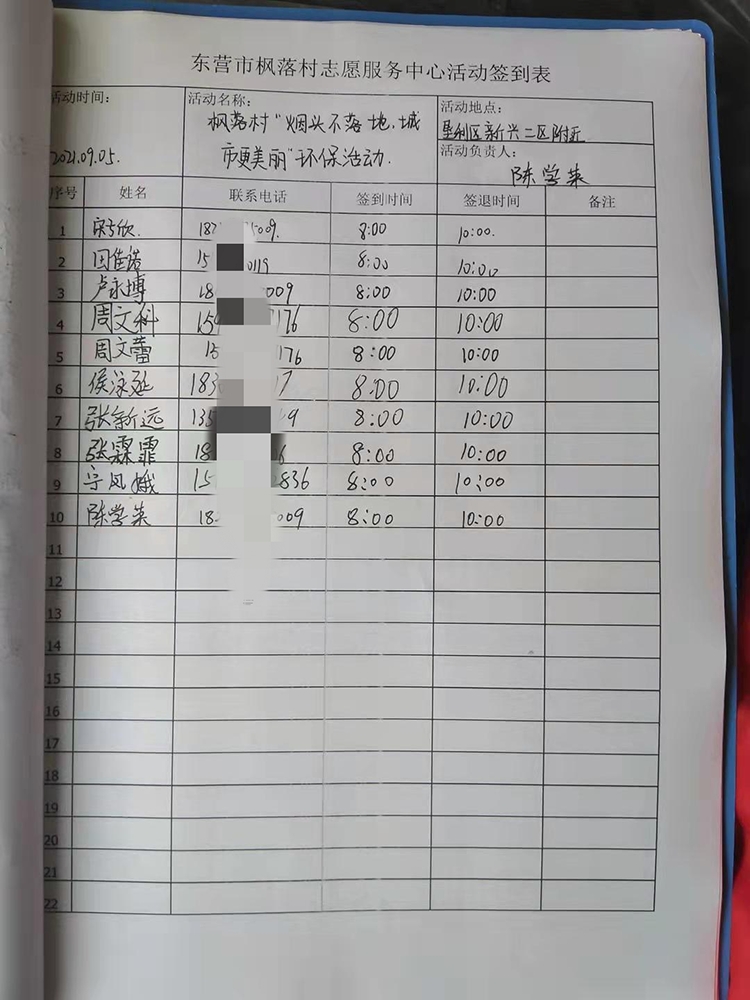 东营市枫落村志愿服务中心活动签到表
活动时间：
2021.09.05.
活动名称：
枫落村"烟头不落地.城
市更美丽"环保活动.
活动地点：
垦利区新兴二区附近
活动负责人：
陈学来
序号 姓名 联系电话 签到时间 签退时间 备注
1 宋欣. 18 009. 8:00 10:00.
2 田佳诺 15 0119 8:00 10:00
3 卢永博 18 009 8:00 10:00
4 周文科 159 176 8:00 10:00
5 周文蕾 15 176 8:00 10:00
6 侯泳延 183 7 8:00 10:00
7 张新远 135 9 8:00 10:00
8 张霖霏 18 6 8:00 10:00
9 宁凤娥 15 836 8:00 10:00
10 陈学来 18 009 8:00 10:00
11
12
13
14
15
16
17
18
19
20
21
22